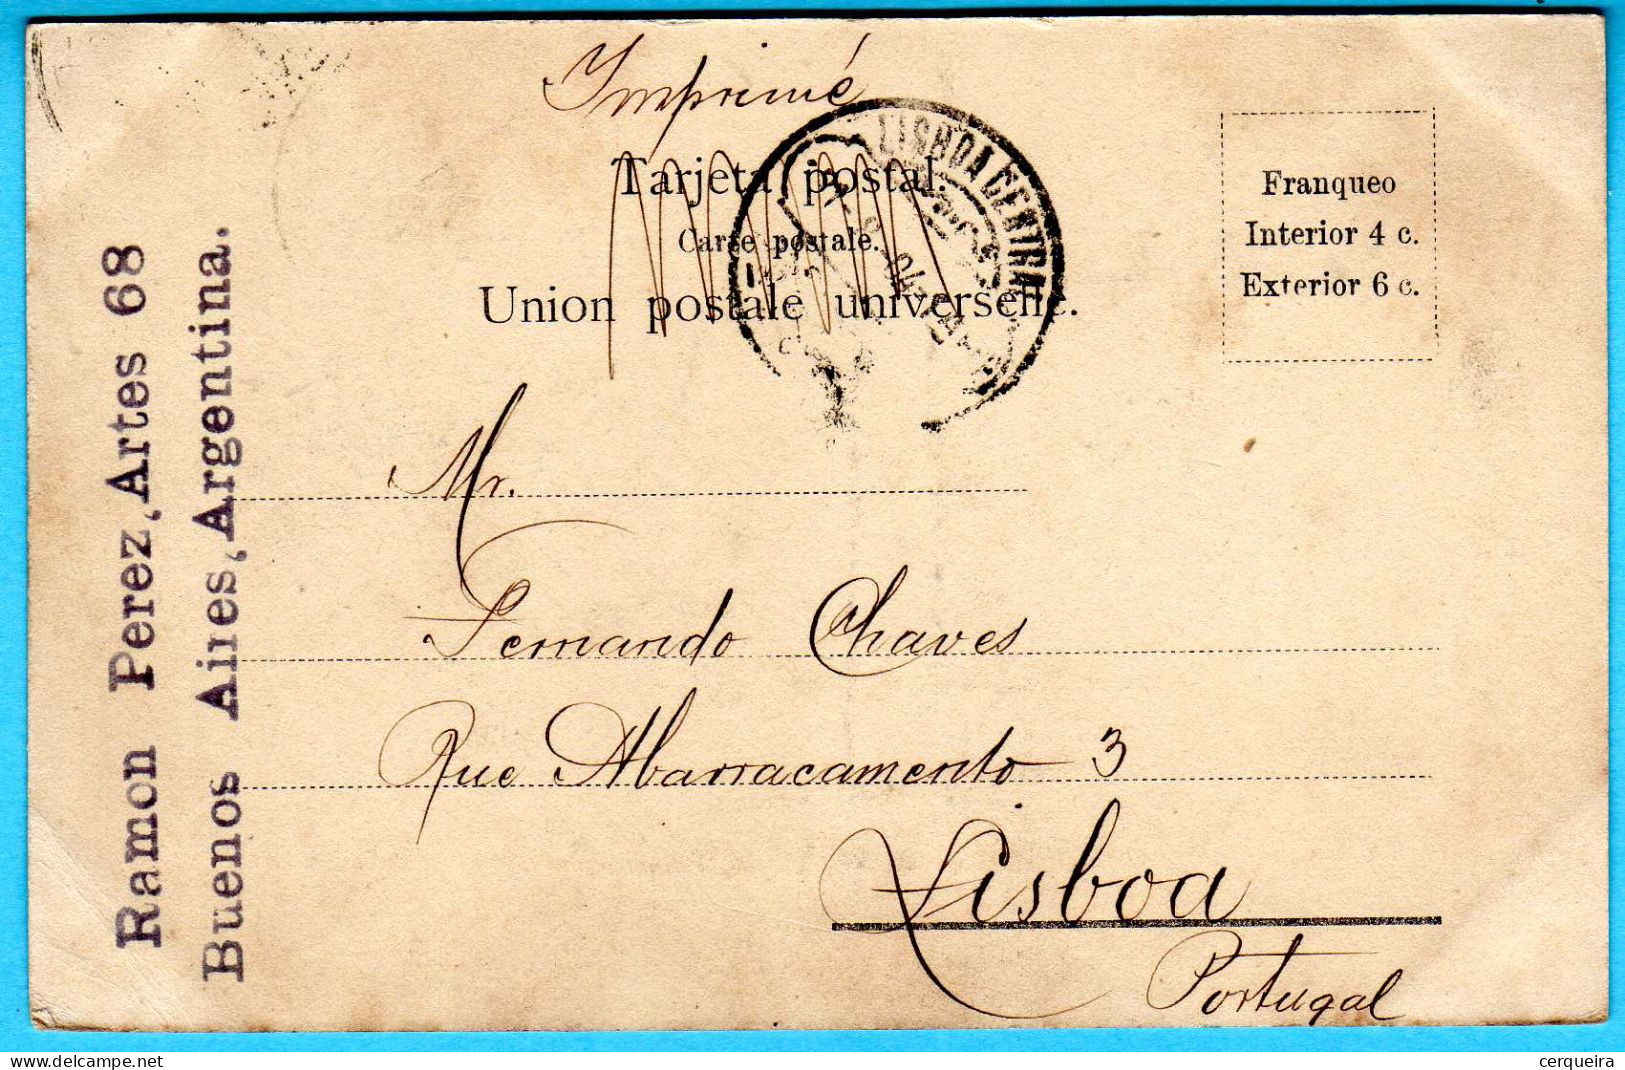 Imprimé
Tarjeta postal.
Carte postale.
Union postale universelle.
LISBOA CENTRAL
Franqueo
Interior 4 c.
Exterior 6 c.
Ramon Perez, Artes 68
Buenos Aires, Argentina.
Mr.
Fernando Chaves
Rue Abarracamento 3
Lisboa
Portugal
delcampe.net
cerqueira